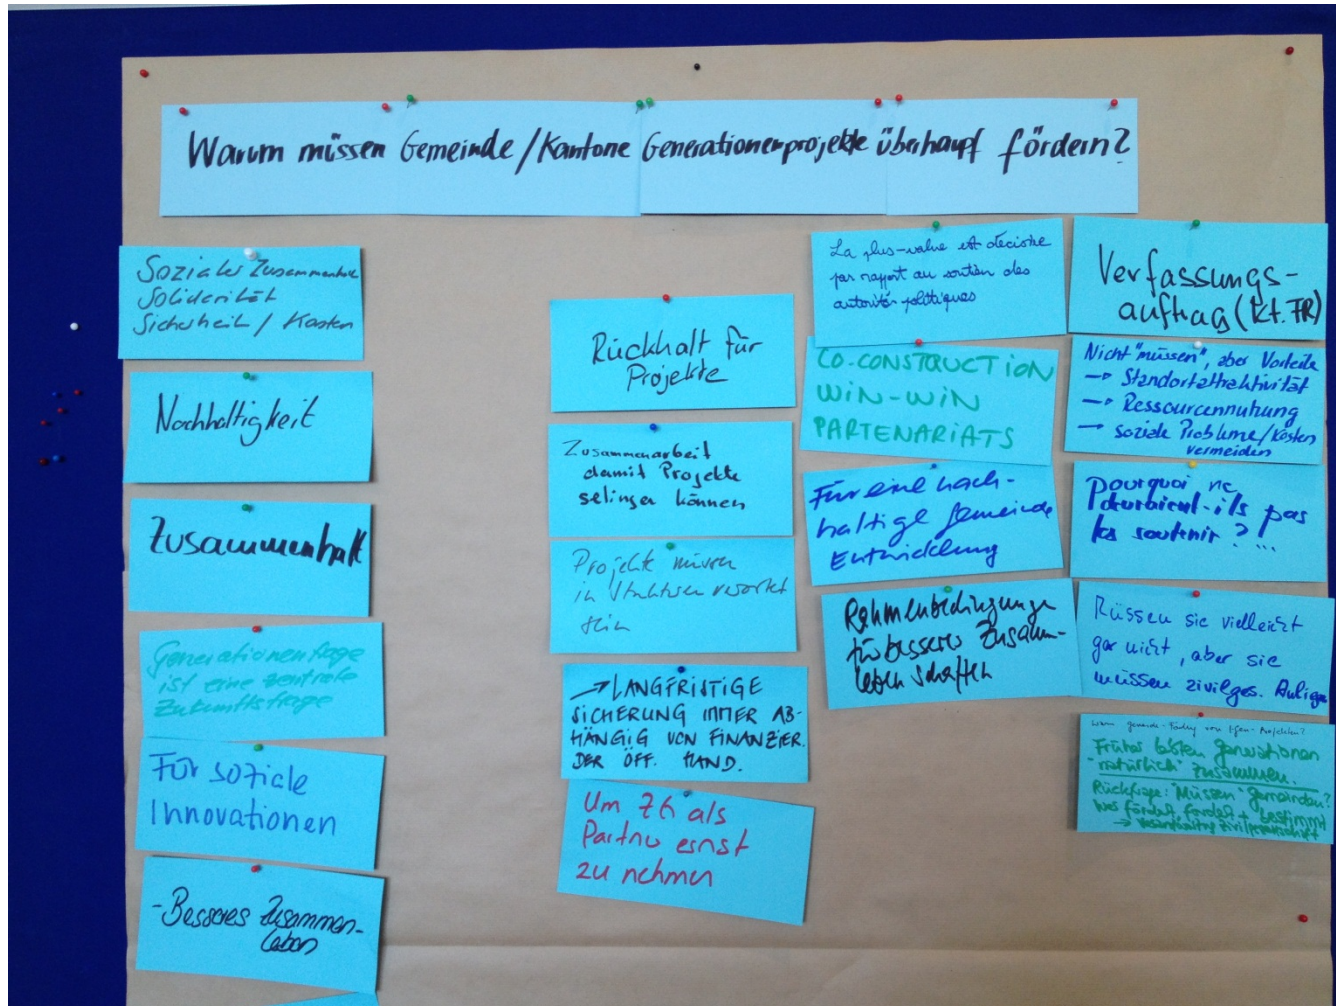 Warum müssen Gemeinde/Kantone Generationenprojekte überhaupt fördern?
Sozialer Zusammenhalt
Solidarität
Sicherheit / Kosten
Nachhaltigkeit
Zusammenhalt
Generationenfrage
ist eine zentrale
Zukunftsfrage
Für soziale
Innovationen
- Besseres Zusammen-
leben
Rückhalt für
Projekte
Zusammenarbeit
damit Projekte
gelingen können
Projekte müssen
in Strukturen
sein
→ LANGFRISTIGE
SICHERUNG IMMER AB-
HÄNGIG VON FINANZIER.
DER ÖFF. HAND.
Um ZG als
Partner ernst
zu nehmen
La plus-value est décisive
par rapport au soutien des
autorités politiques
CO-CONSTRUCTION
WIN-WIN
PARTENARIATS
Für eine nach-
haltige Gemeinde
Entwicklung
Rahmenbedingungen
für besseres Zusammen-
leben schaffen
Verfassungs-
auftrag (Kt. FR)
Nicht "müssen", aber Vorteile
→ Standortattraktivität
→ Ressourcennutzung
→ soziale Probleme/Kosten
vermeiden
Pourquoi ne
pas
les soutenir ? ...
Müssen sie vielleicht
gar nicht, aber sie
müssen zivilges. Anliegen
Früher lebten Generationen
"natürlich" zusammen.
Rückfrage: "Müssen" Gemeinden?
Wer fördert, fordert + bestimmt
→ Verantwortung Zivilgesellschaft